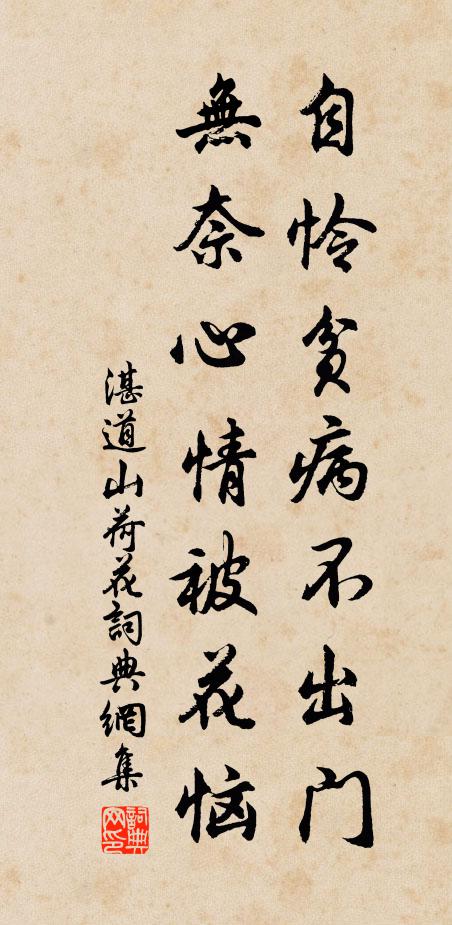 自怜貧病不出門
無奈心情被花恼
湛道山荷花詞典網集
詞典网印